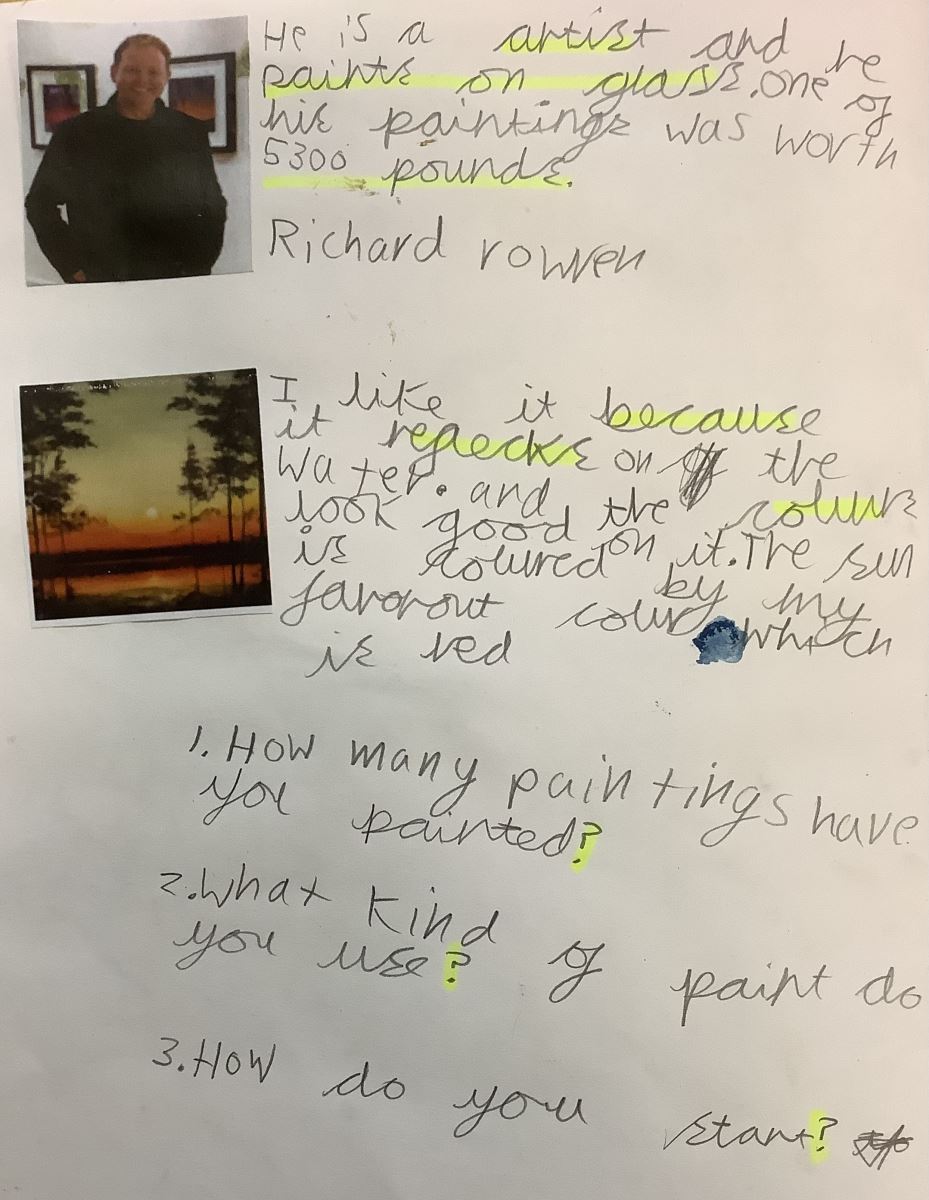 He is a artist and he
paints on glass. One of
his paintings was worth
5300 pounds.
Richard rowren
I like it because
it reflecks on the
water. and the colurs
look good on it. The sun
is coloured by my
favorout colur which
is red
1. How many paintings have
you painted?
2. What kind of paint do
you use?
3. How do you start?